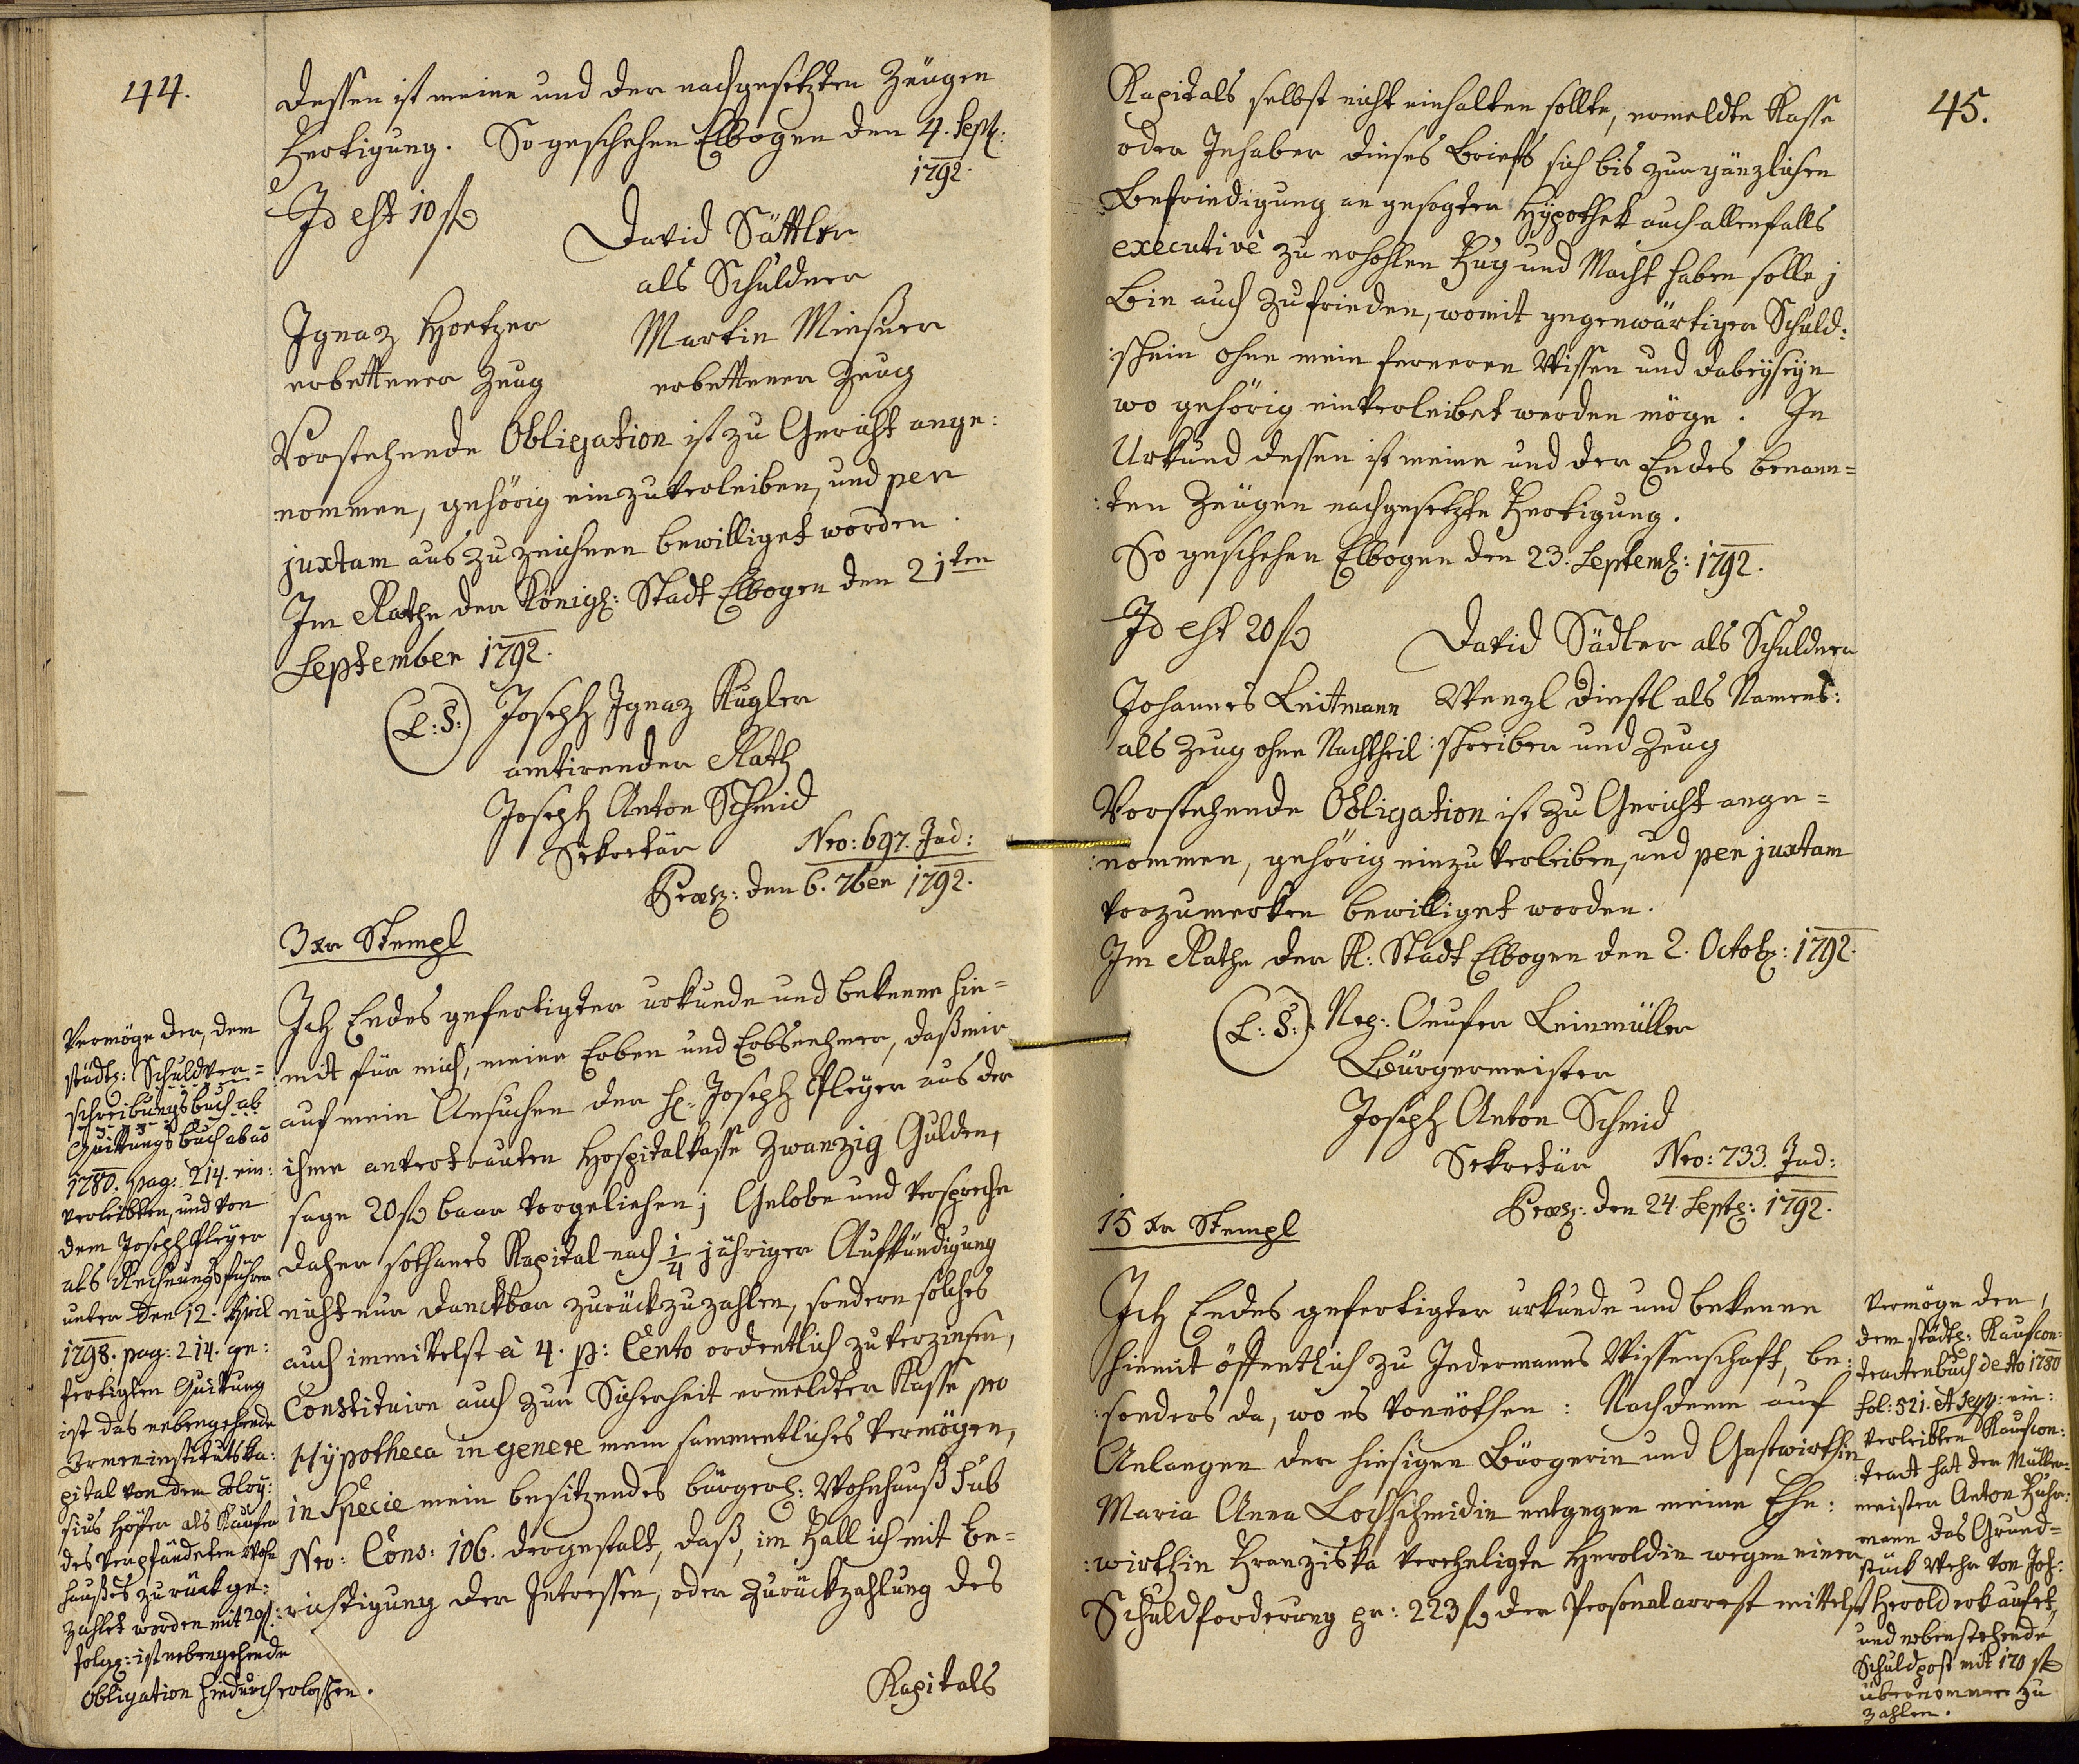 44.
dessen ist meine und der nachgesetzten Zeügen
Fertigung. So geschehen Elbogen den 4. Sept:
1792.
Id est 10 f
David Sattler
als Schuldner
Ignaz Hoetzer
erbettener Zeug
Martin Miesner
erbettener Zeug
Vorstehende Obligation ist zu Gericht ange:
:nommen, gehörig einzuverleiben, und per
juxtam auszuzeichnen bewilliget worden.
Im Rathe der Königl: Stadt Elbogen den 21ten
September 1792.
(L:S:) Joseph Ignaz Kugler
amtirender Rath
Joseph Anton Schmid
Sekretär
Nro: 697. Jud:
Praes: den 6. 7ber 1792.
3 xr Stempl
Ich Endes gefertigter urkunde und bekenne hie=
:mit für mich, meine Erben und Erbsnehmer, daß mir
auf mein Ansuchen der H: Joseph Pleyer aus der
ihme antvertrauten Hospitalkasse Zwanzig Gulden,
sage 20 f baar vorgeliehen; Gelobe und verspreche
daher sothanes Kapital nach 1/4 jähriger Aufkündigung
nicht nur danckbar zurückzuzahlen, sondern solches
auch immittelst à 4. p: Cento ordentlich zu verzinsen,
Constituire auch zur Sicherheit ermeldter Kasse pro
Hypotheca in genere mein sammentliches Vermögen,
in Specie mein besitzendes bürgerl: Wohnhauß sub
Nro: Cons: 106. dergestalt, daß, im Fall ich mit Be=
:richtigung der Intressen, oder Zurückzahlung des
Kapitals
Vermöge der, dem
städt: Schuldver=
schreibungsbuch ab
Quittungsbuch ab ao
1780. pag: 214. ein:
verleibten, und von
dem Joseph Pleyer
als Rechnungsführer
unter den 12. April
1798. pag: 214. ge:
fertigten Quittung
ist das nebengehende
Armeninstitutska:
pital von dem Aloy:
sius Höfer als Käufer
des verpfändeten Wohn
haußes zurückge:
zahlet worden mit 20 f:
folgl: ist nebengehende
Obligation hiedurch erloschen.
45.
Kapitals selbst nicht einhalten sollte, ermeldte Kasse
oder Inhaber dieses Briefs sich bis zur gänzlichen
Befriedigung an gesagter Hÿpothek auch allenfalls
executivè zu erhohlen Fug und Macht haben solle;
Bin auch zufrieden, womit gegenwärtiger Schuld:
:schein ohne mein ferneren Wissen und Dabeÿseÿn
wo gehörig einverleibet werden möge. In
Urkund dessen ist meine und der Endes benann=
:ten Zeügen nachgesetzte Fertigung.
So geschehen Elbogen den 23. Septemb: 1792.
Id est 20 f
David Sädler als Schuldner
Johannes Leitmann
als Zeug ohne Nachtheil
Wenzl Dinstl als Namens:
:schreiber und Zeug
Vorstehende Obligation ist zu Gericht ange=
:nommen, gehörig einzuverleiben, und per juxtam
vorzumerken bewilliget worden.
Im Rathe der K: Stadt Elbogen den 2. Octob: 1792.
(L:S:) Nep: Leinmüller
Bürgermeister
Joseph Anton Schmid
Sekretär
Nro: 733. Jud:
Praes: den 24. Sept: 1792.
15 xr Stempl
Ich Endes gefertigter urkunde und bekenne
hiemit öffentlich zu Jedermanns Wissenschaft, be:
:sonders da, wo es vonnöthen: Nachdeme auf
Anlangen der hiesigen Bürgerin und Gastwirthin
Maria Anna Lochschmidin entgegen meine Ehe:
:wirthin Franziska verehligte Heroldin wegen einer
Schuldforderung pr: 223 f der Personalarrest mittelst
Vermöge der,
dem städt: Kaufcon:
tractenbuch de Ao 1780
fol: 521. et seqq: ein:
verleibten Kaufcon:
:tract hat der Müller=
meister Anton Fuhr:
mann das Grund=
stück Wehr von Joh:
Herold erkaufet,
und nebenstehende
Schuldpost mit 170 f
übernommen zu
zahlen.